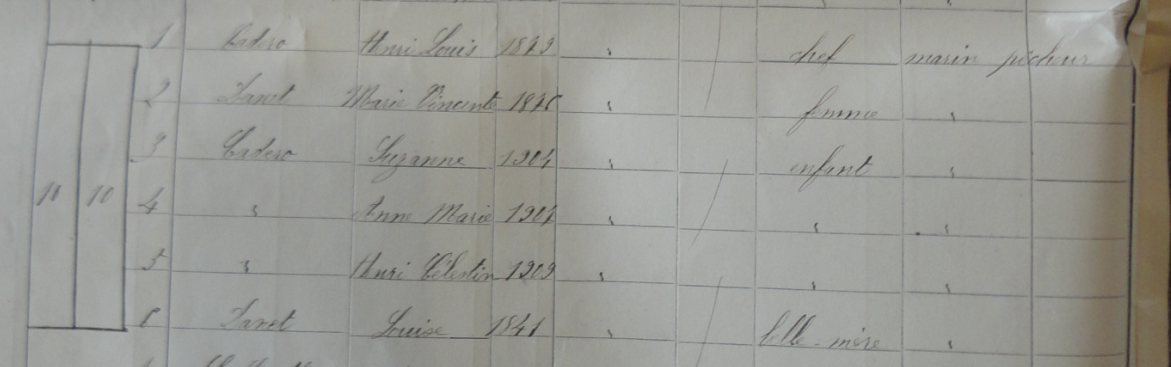 1 Cadero Henri Louis 1873 " chef marin pêcheur
2 Danet Marie Vincente 1876 " femme "
3 Cadero Suzanne 1904 " enfant "
10 10
4 " Anne Marie 1907 " " "
5 " Henri Célestin 1909 " " "
6 Danet Louise 1841 " belle-mère "